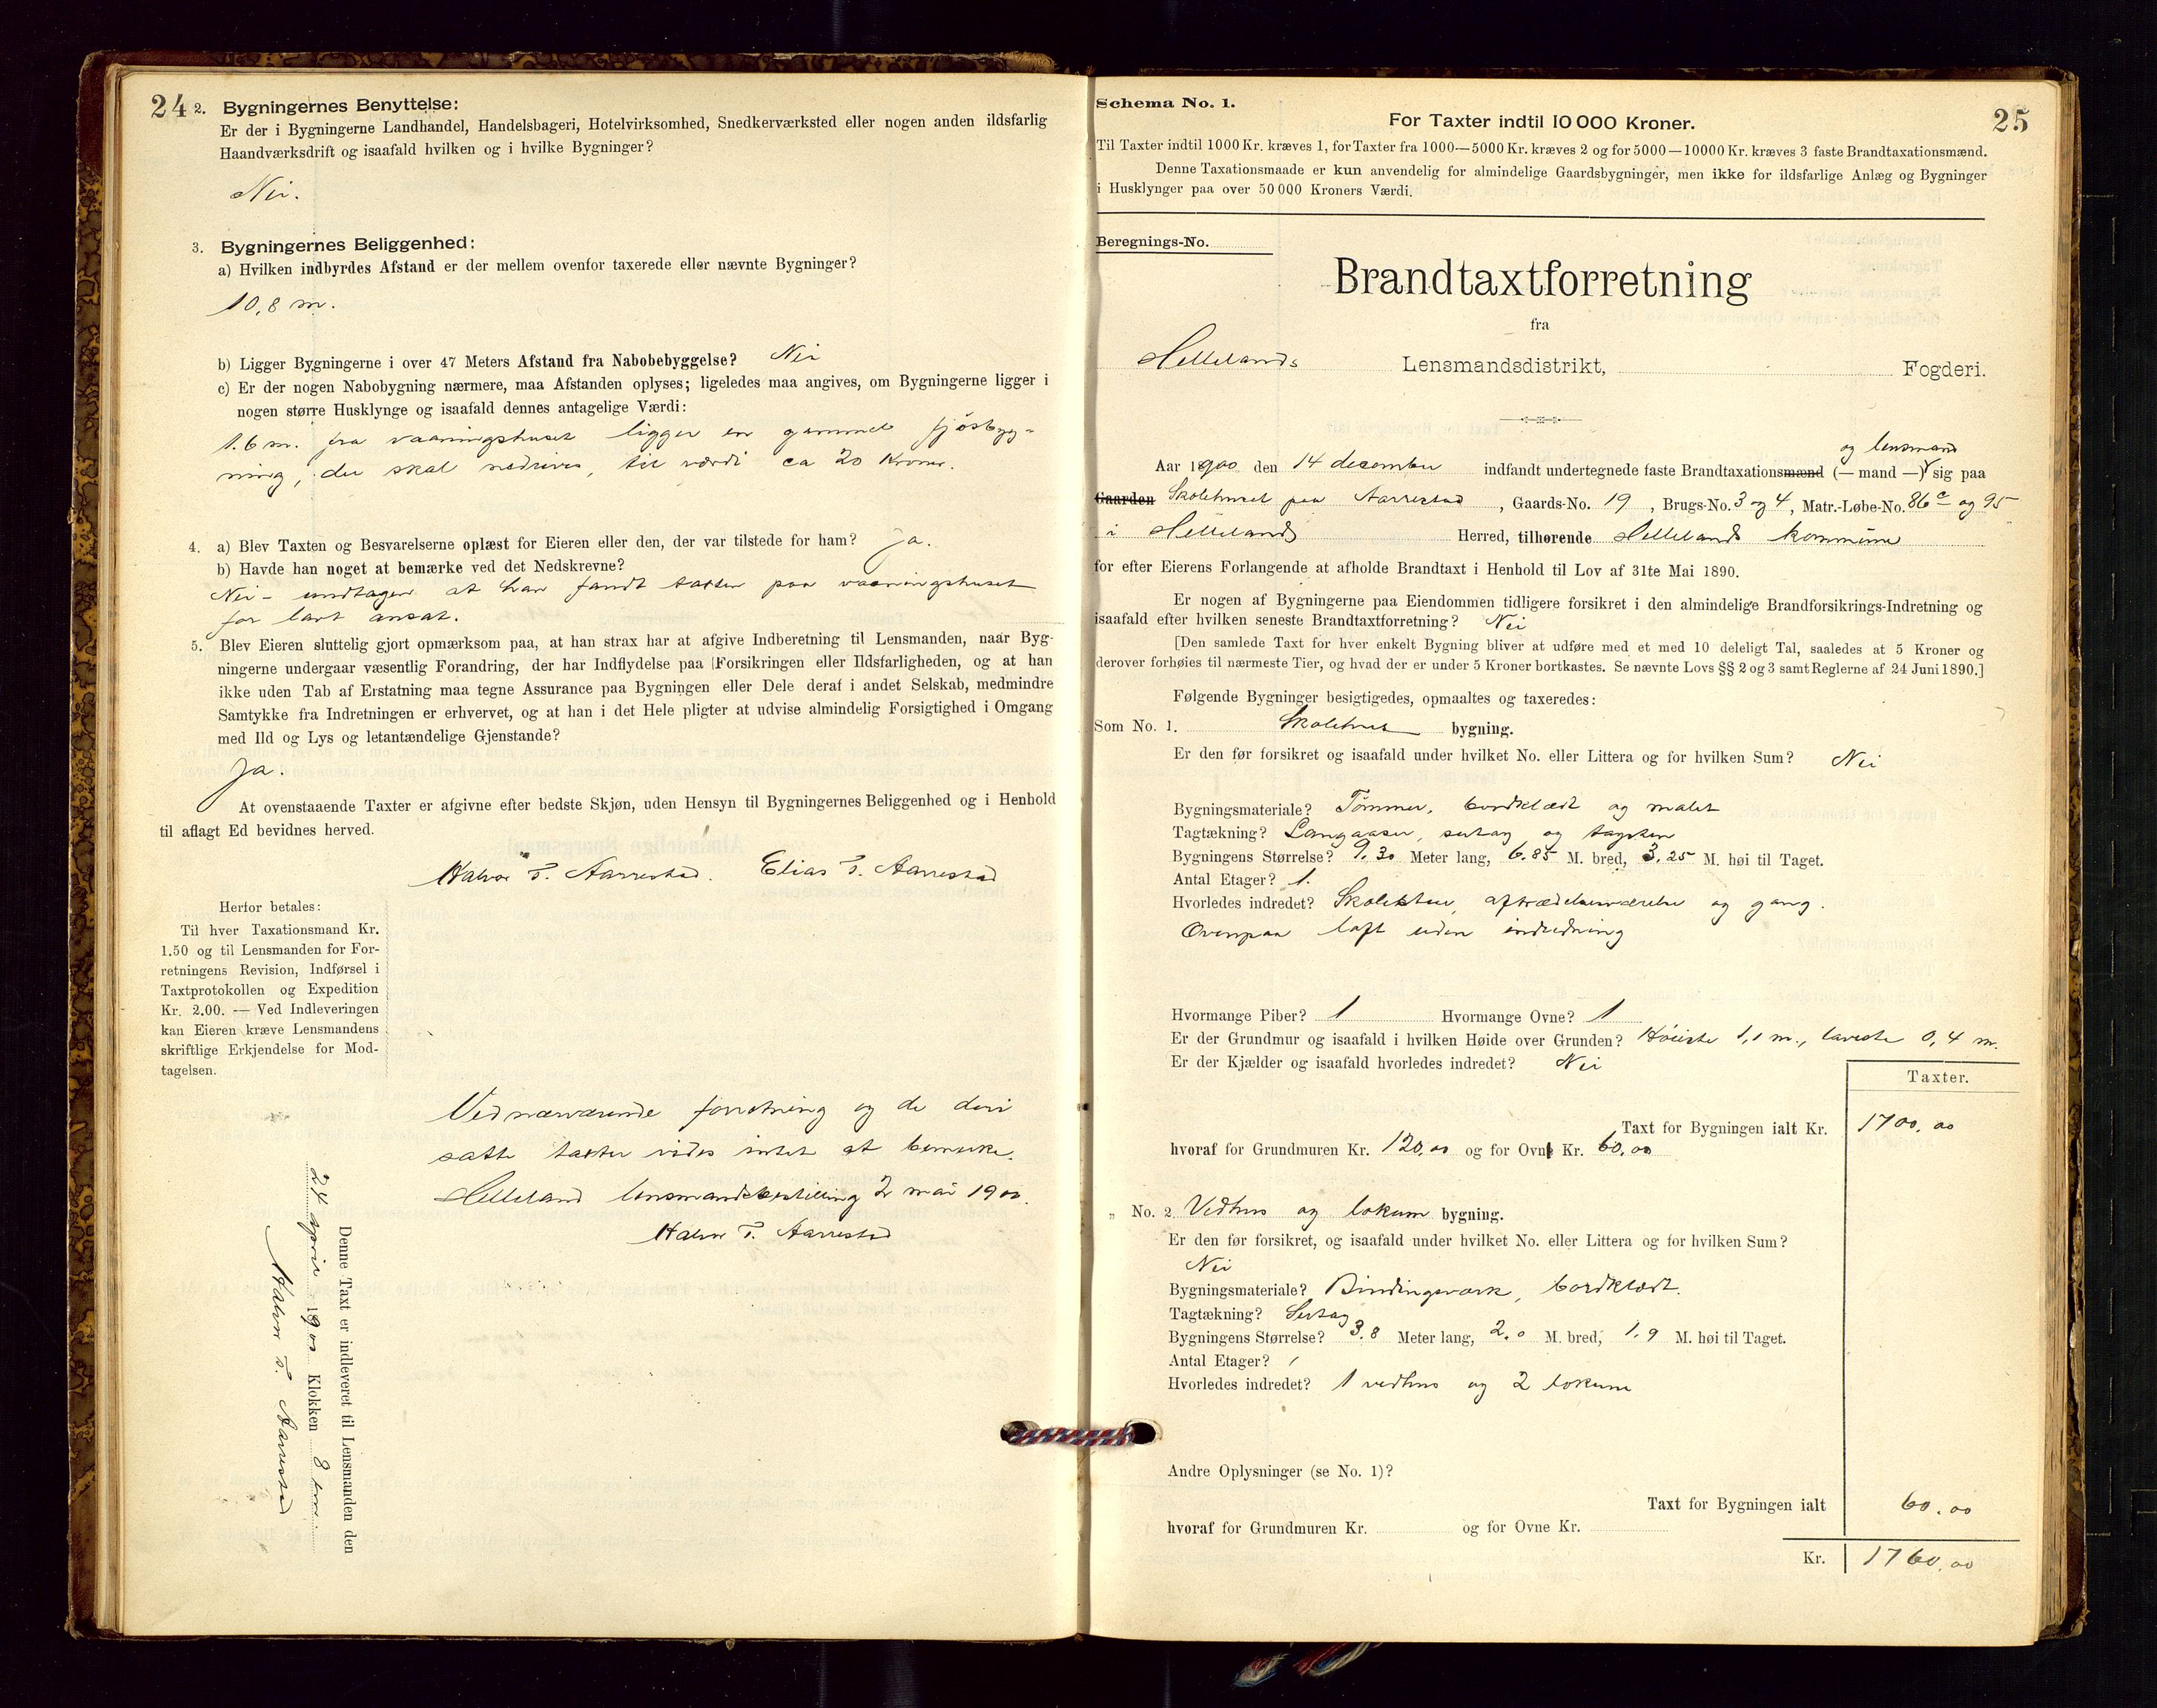 24
2. Bygningernes Benyttelse:
Er der i Bygningerne Landhandel, Handelsbageri, Hotelvirksomhed, Snedkerværksted eller nogen anden ildsfarlig
Haandværksdrift og isaafald hvilken og i hvilke Bygninger?
Nei.
3. Bygningernes Beliggenhed:
a) Hvilken indbyrdes Afstand er der mellem ovenfor taxerede eller nævnte Bygninger?
10,8 m.
b) Ligger Bygningerne i over 47 Meters Afstand fra Nabobebyggelse? Nei
c) Er der nogen Nabobygning nærmere, maa Afstanden oplyses; ligeledes maa angives, om Bygningerne ligger i
nogen større Husklynge og isaafald dennes antagelige Værdi:
1.6 m. fra vaaningshuset ligger en gammel fjösbyg-
ning, der skal nedrives, til værdi ca 20 Kroner.
4. a) Blev Taxten og Besvarelserne oplæst for Eieren eller den, der var tilstede for ham? Ja.
b) Havde han noget at bemærke ved det Nedskrevne?
Nei - undtagen at han fandt taxten paa vaaningshuset
for lavt ansat.
5. Blev Eieren sluttelig gjort opmærksom paa, at han strax har at afgive Indberetning til Lensmanden, naar Byg-
ningerne undergaar væsentlig Forandring, der har Indflydelse paa Forsikringen eller Ildsfarligheden, og at han
ikke uden Tab af Erstatning maa tegne Assurance paa Bygningen eller Dele deraf i andet Selskab, medmindre
Samtykke fra Indretningen er erhvervet, og at han i det Hele pligter at udvise almindelig Forsigtighed i Omgang
med Ild og Lys og letantændelige Gjenstande?
Ja.
At ovenstaaende Taxter er afgivne efter bedste Skjøn, uden Hensyn til Bygningernes Beliggenhed og i Henhold
til aflagt Ed bevidnes herved.
Halvor T. Aarrestad. Elias T. Aarrestad
Herfor betales:
Til hver Taxationsmand Kr.
1.50 og til Lensmanden for For-
retningens Revision, Indførsel i
Taxtprotokollen og Expedition
Kr. 2.00. — Ved Indleveringen
kan Eieren kræve Lensmandens
skriftlige Erkjendelse for Mod-
tagelsen.
Ved nærværende forretning og de deri
satte taxter vides intet at bemerke.
Helleland lensmandsbestilling 2 mai 1900.
Halvor T. Aarrestad
Denne Taxt er indleveret til Lensmanden den
24 april 1900 Klokken 8
Halvor T. Aarrestad
Schema No. 1.
25
For Taxter indtil 10 000 Kroner.
Til Taxter indtil 1000 Kr. kræves 1, for Taxter fra 1000—5000 Kr. kræves 2 og for 5000—10000 Kr. kræves 3 faste Brandtaxationsmænd.
Denne Taxationsmaade er kun anvendelig for almindelige Gaardsbygninger, men ikke for ildsfarlige Anlæg og Bygninger
i Husklynger paa over 50 000 Kroners Værdi.
Beregnings-No.
Brandtaxtforretning
fra
Hellelands Lensmandsdistrikt, Fogderi.
og lensmand
Aar 1900 den 14 december indfandt undertegnede faste Brandtaxationsmænd (— mand —) sig paa
Gaarden Skolehuset paa Aarrestad, Gaards-No. 19, Brugs-No. 3 og 4, Matr.-Løbe-No. 86c og 95
i Hellelands Herred, tilhørende Hellelands kommune
for efter Eierens Forlangende at afholde Brandtaxt i Henhold til Lov af 31te Mai 1890.
Er nogen af Bygningerne paa Eiendommen tidligere forsikret i den almindelige Brandforsikrings-Indretning og
isaafald efter hvilken seneste Brandtaxtforretning? Nei
[Den samlede Taxt for hver enkelt Bygning bliver at udføre med et med 10 deleligt Tal, saaledes at 5 Kroner og
derover forhøies til nærmeste Tier, og hvad der er under 5 Kroner bortkastes. Se nævnte Lovs §§ 2 og 3 samt Reglerne af 24 Juni 1890.]
Følgende Bygninger besigtigedes, opmaaltes og taxeredes:
Som No. 1. Skolehus bygning.
Er den før forsikret og isaafald under hvilket No. eller Littera og for hvilken Sum? Nei
Bygningsmateriale? Tømmer, bordklædt og malet
Tagtækning? Langaaser, sutag og tagsten
Bygningens Størrelse? 9.30 Meter lang, 6.85 M. bred, 3.25 M. høi til Taget.
Antal Etager? 1.
Hvorledes indredet? Skolestue, aftrædelsesværelse og gang.
Ovenpaa loft uden indredning
Hvormange Piber? 1 Hvormange Ovne? 1
Er der Grundmur og isaafald i hvilken Høide over Grunden? Høieste 1,1 m., laveste 0,4 m.
Er der Kjælder og isaafald hvorledes indredet? Nei
Taxter.
Taxt for Bygningen ialt Kr. 1700,00
hvoraf for Grundmuren Kr. 120,00 og for Ovn Kr. 60,00
„ No. 2. Vedhus og lokum bygning.
Er den før forsikret, og isaafald under hvilket No. eller Littera og for hvilken Sum?
Nei
Bygningsmateriale? Bindingsværk, bordklædt.
Tagtækning? Sutag
Bygningens Størrelse? 3.8 Meter lang, 2.0 M. bred, 1.9 M. høi til Taget.
Antal Etager? 1
Hvorledes indredet? 1 vedhus og 2 lokum
Andre Oplysninger (se No. 1)?
Taxt for Bygningen ialt 60.00
hvoraf for Grundmuren Kr. og for Ovne Kr.
Kr. 1760,00